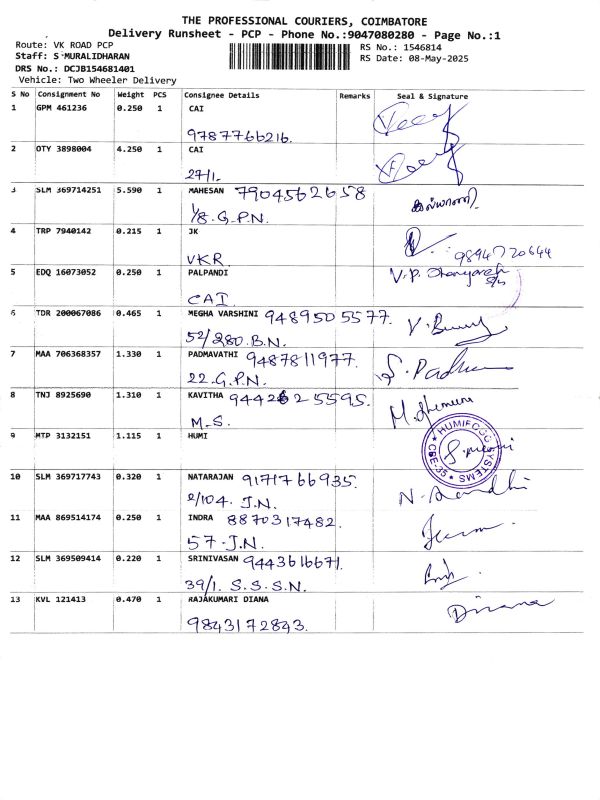 THE PROFESSIONAL COURIERS, COIMBATORE
Delivery Runsheet - PCP - Phone No.:9047080280 - Page No.:1
Route: VK ROAD PCP
Staff: S MURALIDHARAN
DRS No.: DCJB154681401
Vehicle: Two Wheeler Delivery
RS No.: 1546814
RS Date: 08-May-2025
S No Consignment No Weight PCS Consignee Details Remarks Seal & Signature
1 GPM 461236 0.250 1 CAI
9787766216.
2 OTY 3898004 4.250 1 CAI
27/1.
3 SLM 369714251 5.590 1 MAHESAN 7904562658 கல்யாணி
1/8. G.P.N.
4 TRP 7940142 0.215 1 JK
VKR. 9894720644
5 EDQ 16073052 0.250 1 PALPANDI V.P.
CAI.
6 TDR 200067086 0.465 1 MEGHA VARSHINI 9489505577.
52/280. B.N.
7 MAA 706368357 1.330 1 PADMAVATHI 9487811977. S. Padma
22. G.P.N.
8 TNJ 8925690 1.310 1 KAVITHA
M.S.
9 MTP 3132151 1.115 1 HUMI
HUMIFOG SYSTEMS CBE-35
10 SLM 369717743 0.320 1 NATARAJAN 9171766935.
2/104. J.N.
11 MAA 869514174 0.250 1 INDRA 8870317482.
57. J.N.
12 SLM 369509414 0.220 1 SRINIVASAN 9443616671.
39/1. S.S.S.N.
13 KVL 121413 0.470 1 RAJAKUMARI DIANA Diana
9843172843.